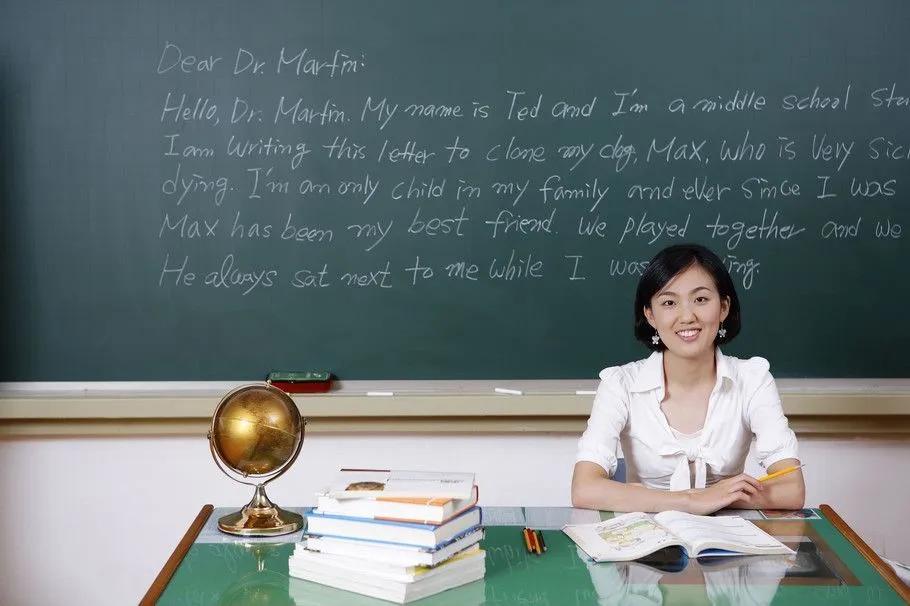 Dear Dr. Martin:
Hello, Dr. Martin. My name is Ted and I'm a middle school
I am writing this letter to clone my dog, Max, who is very
dying. I'm an only child in my family and ever since I was
Max has been my best friend. We played together and we
He always sat next to me while I was